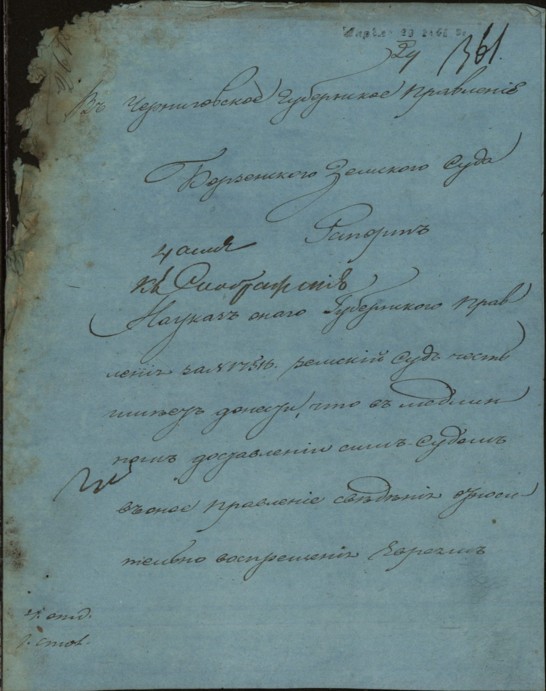 24
361.
Въ Черниговское Губернское Правленіе
Борзенского Земского Суда
Рапортъ
4 мая
Къ Соображенію
На указъ оного Губернского Прав
ленія за № 17516. Земскій Судъ честь
имѣетъ донести, что въ
доставленіи симъ Судомъ
въ оное Правленіе свѣдѣнія относи
тельно воспрещенія Евреямъ
2. отд.
1. стол.